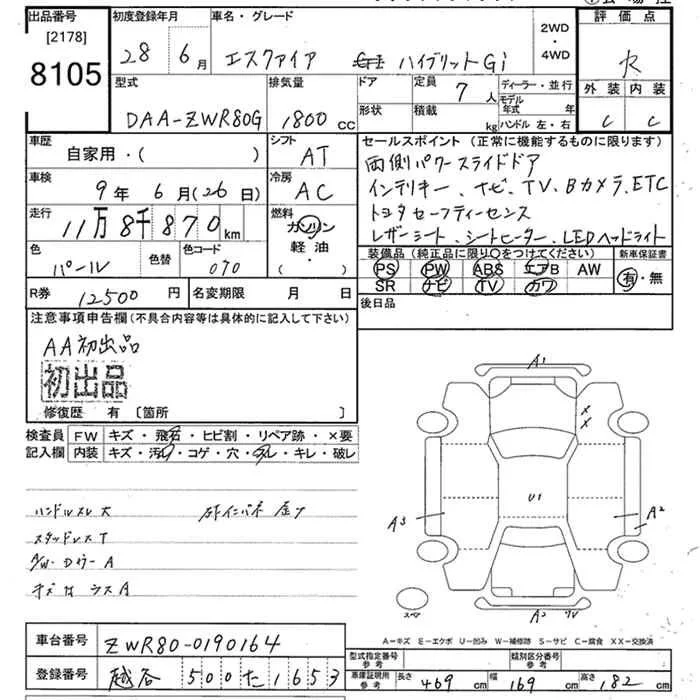 出品番号
[2178]
8105
初度登録年月
28年 6月
車名・グレード
エスクァイア ハイブリットGi
2WD
・
4WD
評価点
R
外装 内装
C C
型式
DAA-ZWR80G
排気量
1800 CC
ドア
定員
7人
形状
積載
kg
ディーラー・並行
モデル年式 年
ハンドル 左・右
車歴
自家用・( )
シフト
AT
車検
9年 6月(26日)
冷房
AC
走行
11万8千870km
燃料
ガソリン
軽・油
( )
色
パール
色替
色コード
070
R券 12500円
名変期限 月 日
セールスポイント(正常に機能するものに限ります)
両側パワースライドドア
インテリキー、ナビ、TV、Bカメラ、ETC
トヨタセーフティーセンス
レザーシート、シートヒーター、LEDヘッドライト
装備品(純正品に限り○をつけてください)
新車保証書
PS PW ABS エアB AW
SR ナビ TV カワ
有・無
後日品
注意事項申告欄(不具合内容等は具体的に記入して下さい)
AA初出品
初出品
修復歴 有 〔箇所 〕
検査員記入欄
FW キズ・飛石・ヒビ割・リペア跡・×要
内装 キズ・汚れ・コゲ・穴・スレ・キレ・破レ
ハンドルスレ大
スタッドレスT
キズ
A1
U1
A3
A2
A2
スペア
A-キズ E-エクボ U-凹み W-補修跡 S-サビ C-腐食 XX-交換済
車台番号 ZWR80-0190164
登録番号 越谷 500 た 1653
型式指定番号参考
類別区分番号参考
車庫証明用参考 長さ 469cm 幅 169cm 高さ 182cm